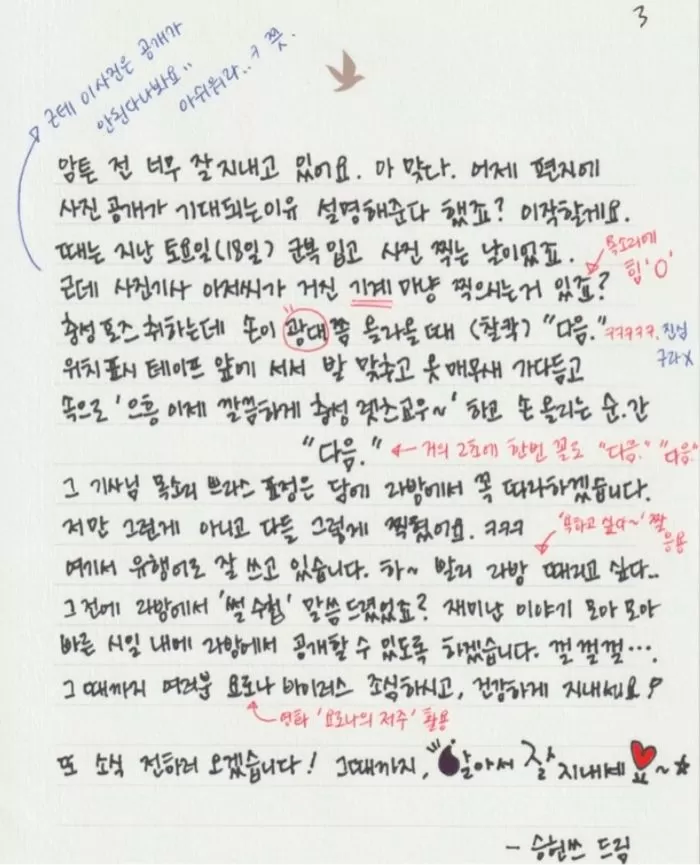 3
근데 이사진은 공개가
안된다나봐요..
아쉬워라..ㅋ쯪.
암튼 전 너무 잘지내고 있어요. 아 맞다. 어제 편지에
사진공개가 기대되는이유 설명해준다 했죠? 이작할게요.
때는 지난 토요일(18일) 군복입고 사진 찍는 날이었죠.
목소리에
힘'0'
근데 사진기사 아저씨가 거진 기계마냥 찍으시는거 있죠?
충성포즈 취하는데 손이 광대쯤 올라올때 (찰칵) "다음."
ㅋㅋㅋㅋㅋ. 진심
구라X
위치표시 테이프 앞에 서서 발 맞추고 옷매무새 가다듬고
속으로 '으흥 이제 깔끔하게 충성 렛츠고우~' 하고 손 올리는 순.간
"다음." ← 거의 2초에 한번 꼴로 "다음." "다음."
그 기사님 목소리 쁘라스 표정은 담에 라방에서 꼭 따라하겠습니다.
저만 그런게 아니고 다들 그렇게 찍혔어요. ㅋㅋㅋ
'욕하고 싶다~' 짤
응용
여기서 유행어로 잘 쓰고 있습니다. 하~ 빨리 라방 때리고 싶다..
그전에 라방에서 '썰 수첩' 말씀드렸었죠? 재미난 이야기 모아모아
빠른 시일 내에 라방에서 공개할 수 있도록 하겠습니다. 껄껄껄···.
그때까지 여러분 요로나 바이러스 조심하시고, 건강하게 지내세요!
영화 '요로나의 저주' 활용
또 소식 전하러 오겠습니다! 그때까지, 알아서 잘 지내세요~☆
- 승현쓰 드림